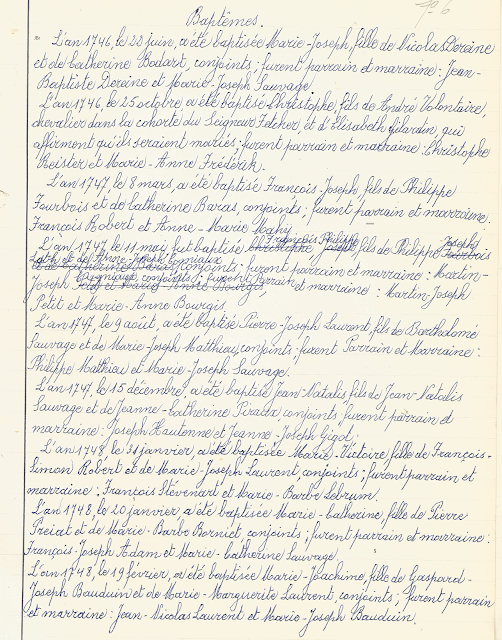 Baptêmes.
p. 6
" L'an 1746, le 22 juin, a été baptisée Marie-Joseph, fille de Nicolas Dereine
et de Catherine Bodart, conjoints; furent parrain et marraine: Jean-
Baptiste Dereine et Marie-Joseph Sauvage.
L'an 1746, le 25 octobre a été baptisé Christophe, fils de André Volontaire,
chevalier dans la cohorte du Seigneur Fetcher, et d'Elisabeth Gilardin, qui
affirment qu'ils seraient mariés; furent parrain et marraine: Christophe
Reister et Marie-Anne Frédérik.
L'an 1747, le 8 mars, a été baptisé François-Joseph, fils de Philippe
Fourbois et de Catherine Baras, conjoints; furent parrain et marraine:
François Robert et Anne-Marie Mahy.
L'an 1747, le 11 mai fut baptisé François Philippe Joseph, fils de Philippe Joseph
et de Anne-Joseph
conjoints; furent parrain et marraine: Martin-
Joseph parrain et marraine: Martin-Joseph
Petit et Marie-Anne Bourgis.
L'an 1747, le 9 août, a été baptisé Pierre-Joseph Laurent, fils de Bartholomé
Sauvage et de Marie-Joseph Matthieu, conjoints; furent Parrain et Marraine:
Philippe Matthieu et Marie-Joseph Sauvage.
L'an 1747, le 15 décembre, a été baptisé Jean-Natalis, fils de Jean-Natalis
Sauvage et de Jeanne-Catherine Pirada, conjoints, furent parrain et
marraine: Joseph Hautenne et Jeanne-Joseph Gigot.
L'an 1748, le 31 janvier, a été baptisée Marie-Victoire, fille de François-
Simon Robert et de Marie-Joseph Laurent, conjoints; furent parrain et
marraine: François Stévenart et Marie-Barbe Lebrum.
L'an 1748, le 20 janvier a été baptisée Marie-Catherine, fille de Pierre
Preiat et de Marie-Barbe Borniet, conjoints; furent parrain et marraine:
François-Joseph Adam et Marie-Catherine Sauvage.
L'an 1748, le 19 février, a été baptisée Marie-Joachime, fille de Gaspard-
Joseph Bauduin et de Marie-Marguerite Laurent, conjoints; furent parrain
et marraine: Jean-Nicolas Laurent et Marie-Joseph Bauduin.